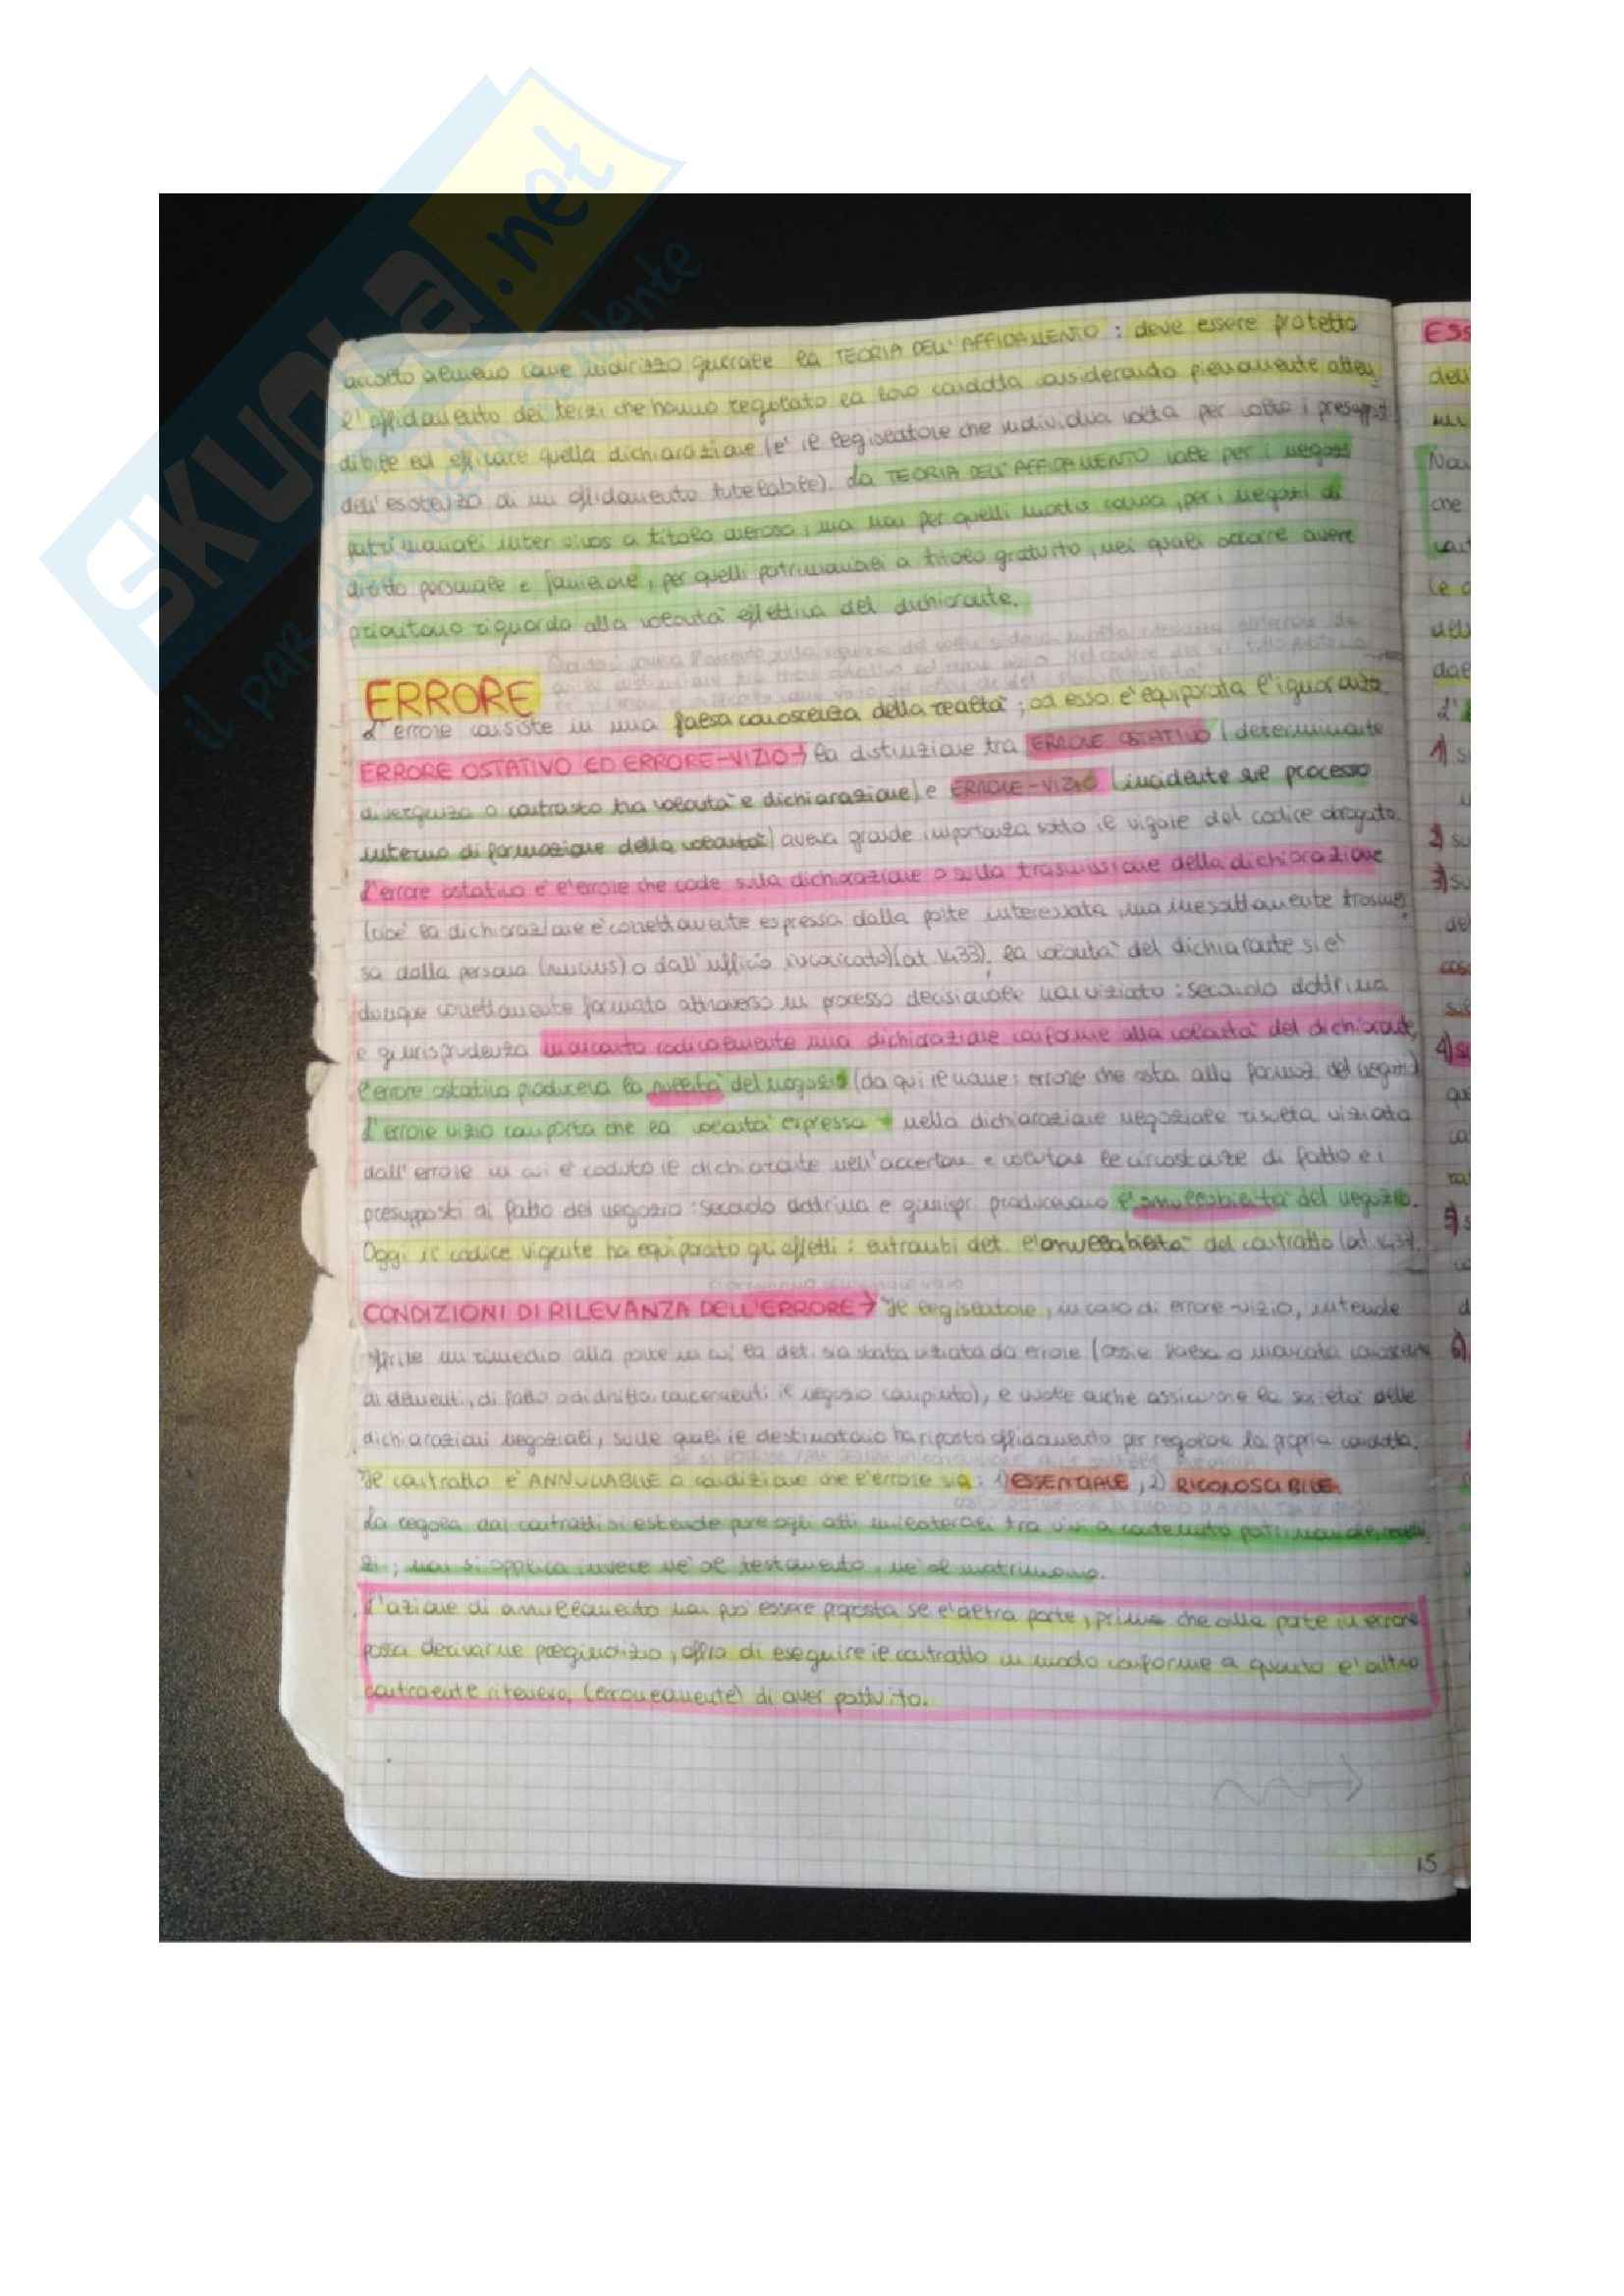 SKUOLA.net
il paradiso dello studente
accolto almeno come indirizzo generale la TEORIA DELL'AFFIDAMENTO : deve essere protetto
l'affidamento dei terzi che hanno regolato la loro condotta considerando pienamente atten
dibile ed efficace quella dichiarazione (è il legislatore che individua volta per volta i presuppost
dell'esistenza di un affidamento tutelabile). La TEORIA DELL'AFFIDAMENTO vale per i negozi
patrimoniali inter vivos a titolo oneroso, ma non per quelli mortis causa, per i negozi di
diritto personale e familiare, per quelli patrimoniali a titolo gratuito, nei quali occorre avere
prioritario riguardo alla volontà effettiva del dichiarante.
ERRORE
L'errore consiste in una falsa conoscenza della realtà ; ad esso è equiparata l'ignoranza
ERRORE OSTATIVO ED ERRORE-VIZIO → la distinzione tra ERRORE OSTATIVO (determinante
divergenza o contrasto tra volontà e dichiarazione) e ERRORE-VIZIO (incidente sul processo
interno di formazione della volontà) aveva grande importanza sotto il vigore del codice abrogato.
L'errore ostativo è l'errore che cade sulla dichiarazione o sulla trasmissione della dichiarazione
(cioè la dichiarazione è correttamente espressa dalla parte interessata, ma inesattamente trasmes
sa dalla persona (nuncius) o dall'ufficio incaricato) (art. 1433). La volontà del dichiarante si è
dunque correttamente formata attraverso un processo decisionale non viziato : secondo dottrina
e giurisprudenza mancando radicalmente una dichiarazione conforme alla volontà del dichiarante,
l'errore ostativo produceva la nullità del negozio (da qui il nome: errore che osta alla formaz. del negozio)
L'errore vizio comporta che la volontà espressa nella dichiarazione negoziale risulta viziata
dall'errore in cui è caduto il dichiarante nell'accertare e valutare le circostanze di fatto e i
presupposti di fatto del negozio : secondo dottrina e giurispr. producevano l'annullabilità del negozio.
Oggi il codice vigente ha equiparato gli effetti : entrambi det. l'annullabilità del contratto (art. 1427).
CONDIZIONI DI RILEVANZA DELL'ERRORE → Il legislatore, in caso di errore-vizio, intende
offrire un rimedio alla parte in cui la det. sia stata viziata da errore (ossia falsa o mancata conoscenza
di elementi, di fatto o di diritto, concernenti il negozio compiuto), e vuole anche assicurare la serietà delle
dichiarazioni negoziali, sulle quali il destinatario ha riposto affidamento per regolare la propria condotta.
Il contratto è ANNULLABILE a condizione che l'errore sia : 1) ESSENZIALE, 2) RICONOSCIBILE.
La regola dai contratti si estende pure agli atti unilaterali tra vivi a contenuto patrimoniale,
; non si applica invece nè al testamento, nè al matrimonio.
L'azione di annullamento non può essere proposta se l'altra parte, prima che alla parte in errore
possa derivarne pregiudizio, offra di eseguire il contratto in modo conforme a quanto l'altro
contraente riteneva (erroneamente) di aver pattuito.
15
ESS
dell
Non
che
le c
1) s
2) su
3) su
del
4) s
5) s
6)